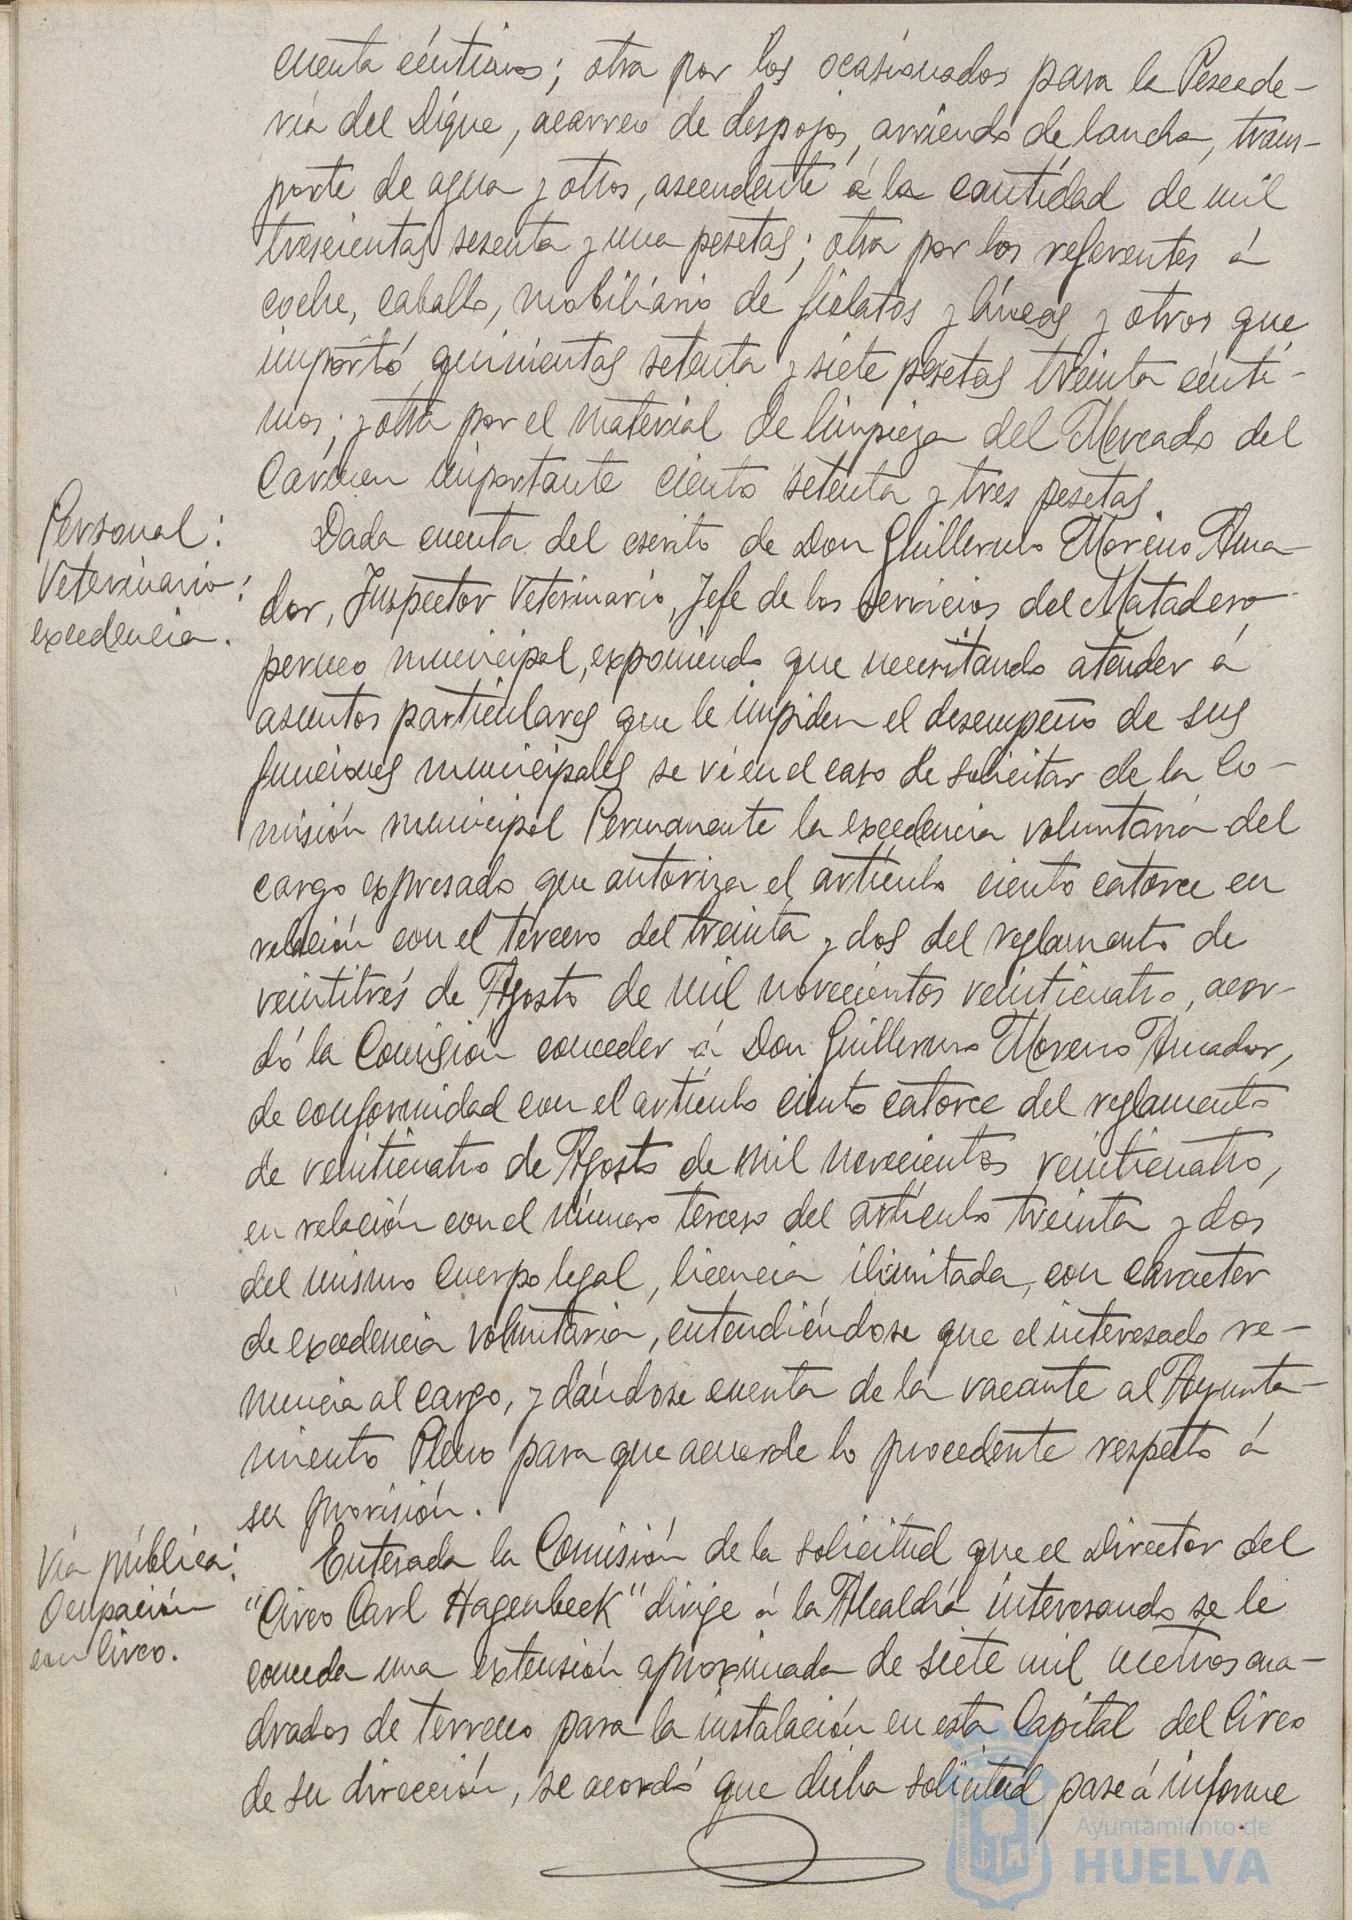 cuenta céntimos; otra por los ocasionados para la Pescade-
ría del Dique, acarreo de despojos, arriendo de lancha, trans-
porte de agua y otros, ascendente á la cantidad de mil
trescientas sesenta y una pesetas; otra por los referentes á
coche, caballo, mobiliario de fielatos y líneas y otros que
importó quinientas setenta y siete pesetas treinta cénti-
mos; y otra por el material de limpieza del Mercado del
Cármen importante ciento setenta y tres pesetas.
Personal:
Veterinario:
excedencia.
Dada cuenta del escrito de Don Guillermo Moreno Ama-
dor, Inspector Veterinario, Jefe de los servicios del Matadero
perneo municipal, exponiendo que necesitando atender á
asuntos particulares que le impiden el desempeño de sus
funciones municipales se vé en el caso de solicitar de la Co-
misión municipal Permanente la excedencia voluntaria del
cargo expresado que autoriza el artículo ciento catorce en
relación con el tercero del treinta y dos del reglamento de
veintitrés de Agosto de mil novecientos veinticuatro, acor-
dó la Comisión conceder á Don Guillermo Moreno Amador,
de conformidad con el artículo ciento catorce del reglamento
de veinticuatro de Agosto de mil novecientos veinticuatro,
en relación con el número tercero del artículo treinta y dos
del mismo Cuerpo legal, licencia ilimitada, con caracter
de excedencia voluntaria, entendiéndose que el interesado re-
nuncia al cargo, y dándose cuenta de la vacante al Ayunta-
miento Pleno para que acuerde lo procedente respecto á
su provisión.
Vía pública:
Ocupación
con Circo.
Enterada la Comisión de la solicitud que el Director del
"Circo Carl Hagenbeck" dirige á la Alcaldía interesando se le
conceda una extensión aproximada de siete mil metros cua-
drados de terreno para la instalación en esta Capital del Circo
de su dirección, se acordó que dicha solicitud pase á informe
Ayuntamiento de
HUELVA